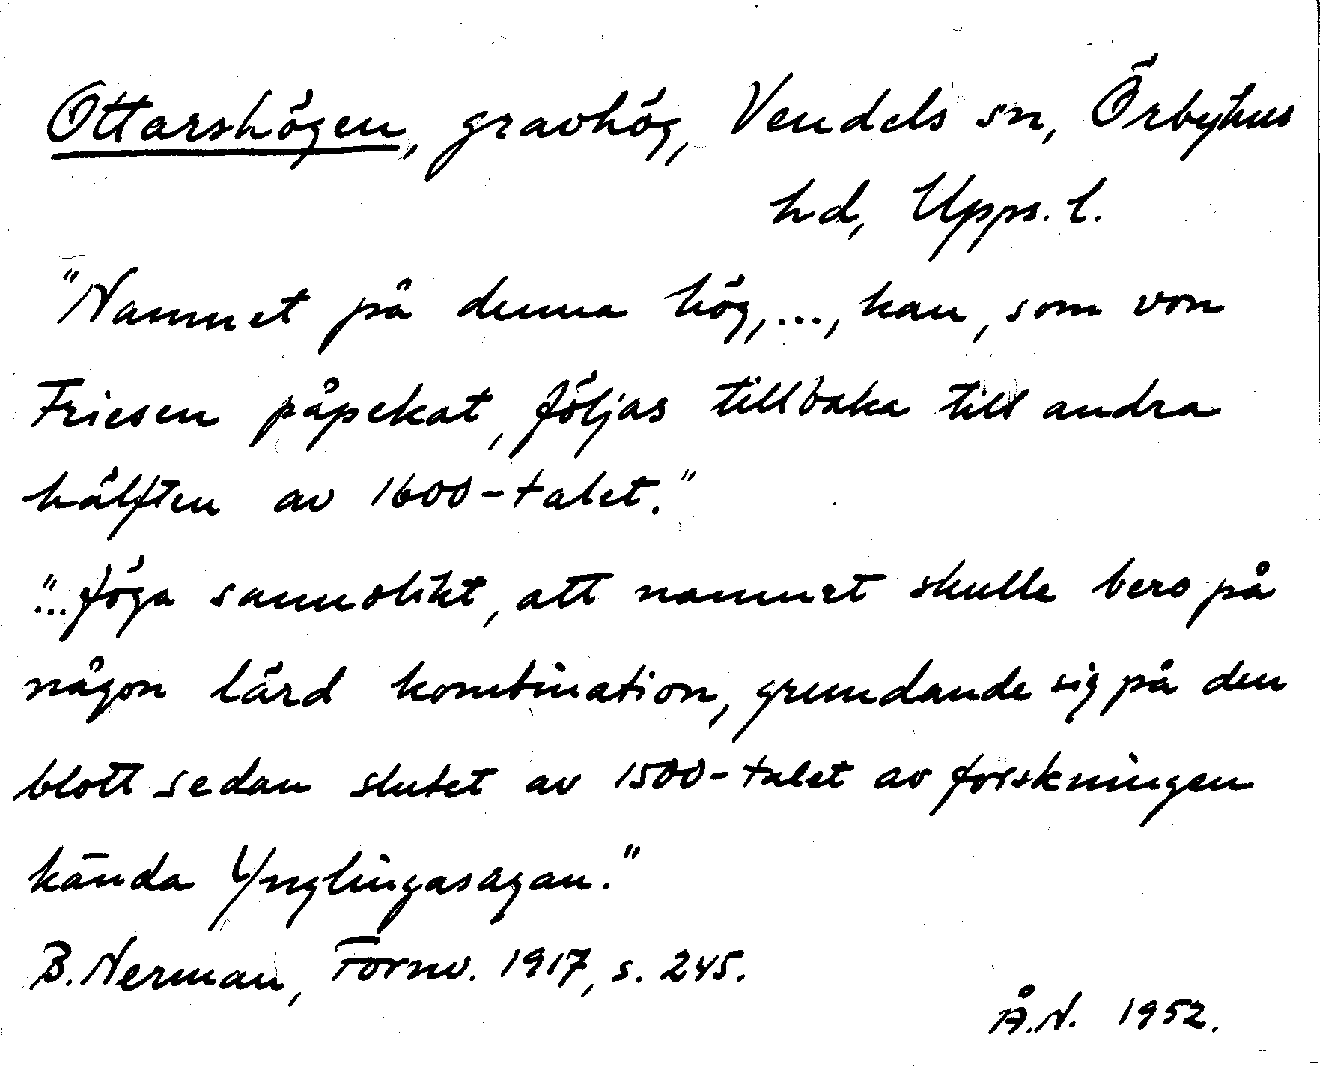 Ottarshögen, gravhög, Vendels sn, Örbyhus
hd, Upps. l.
"Namnet på denna hög,..., kan, som von
Friesen påpekat, följas tillbaka till andra
hälften av 1600-talet."
"...föga sannolikt, att namnet skulle bero på
någon lärd kombination, grundande sig på den
blott sedan slutet av 1500-talet av forskningen
kända Ynglingasagan."
B. Nerman, Fornv. 1917, s. 245.
Å.N. 1952.